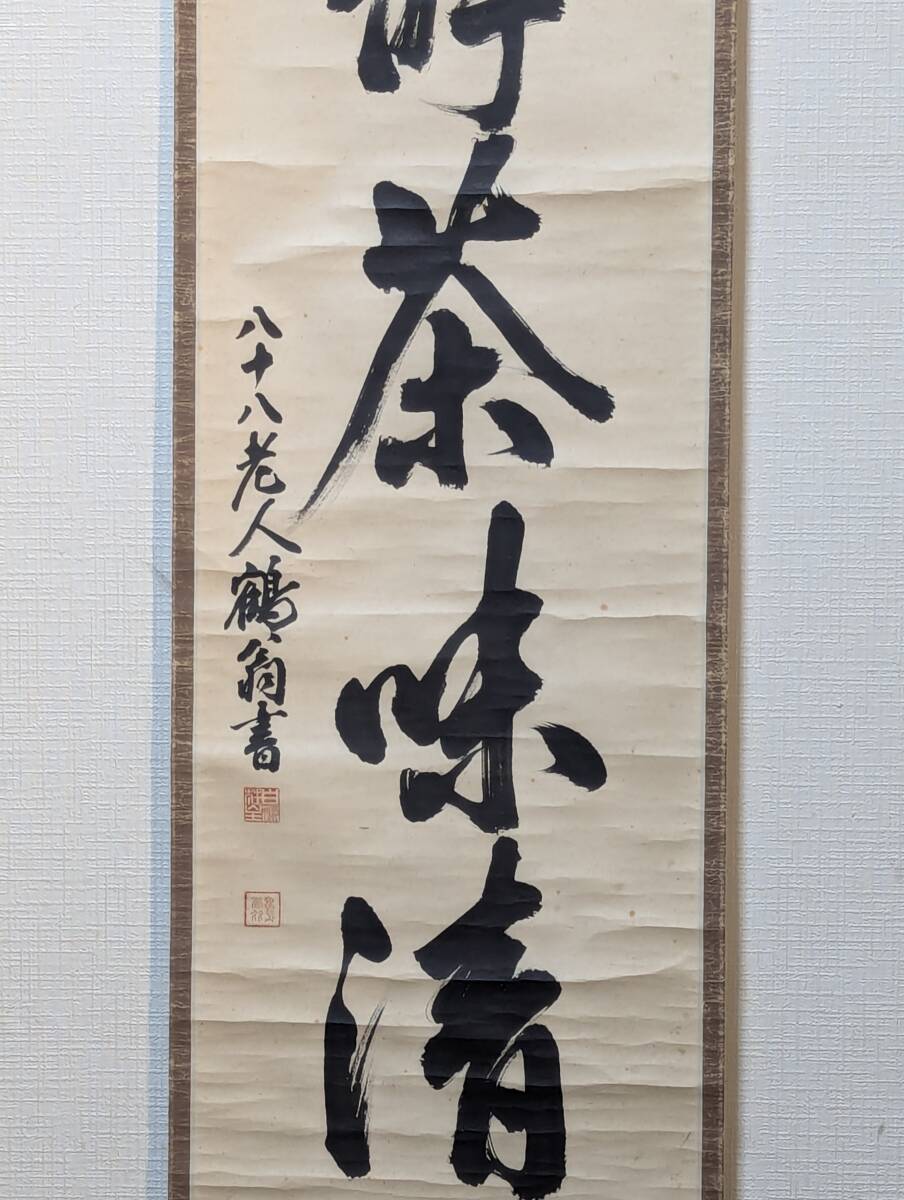 茶味清
八十八老人鶴翁書